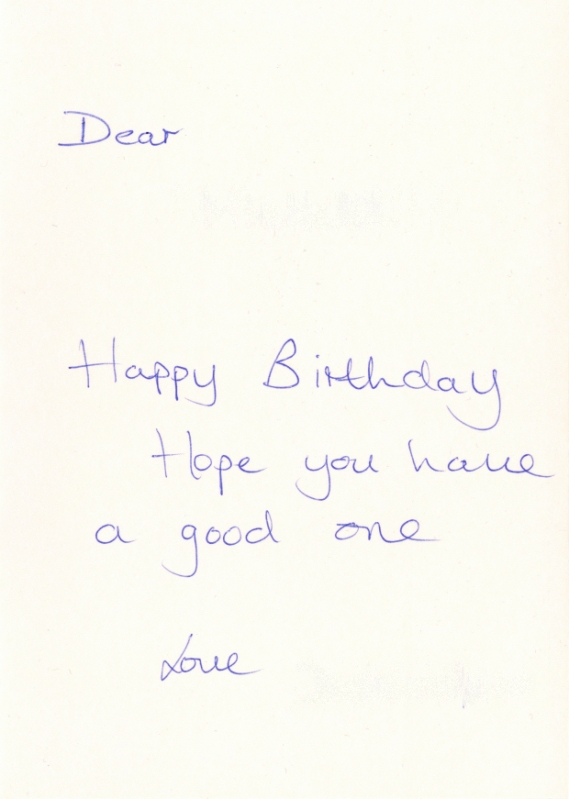 Dear
Happy Birthday
Hope you have
a good one
Love